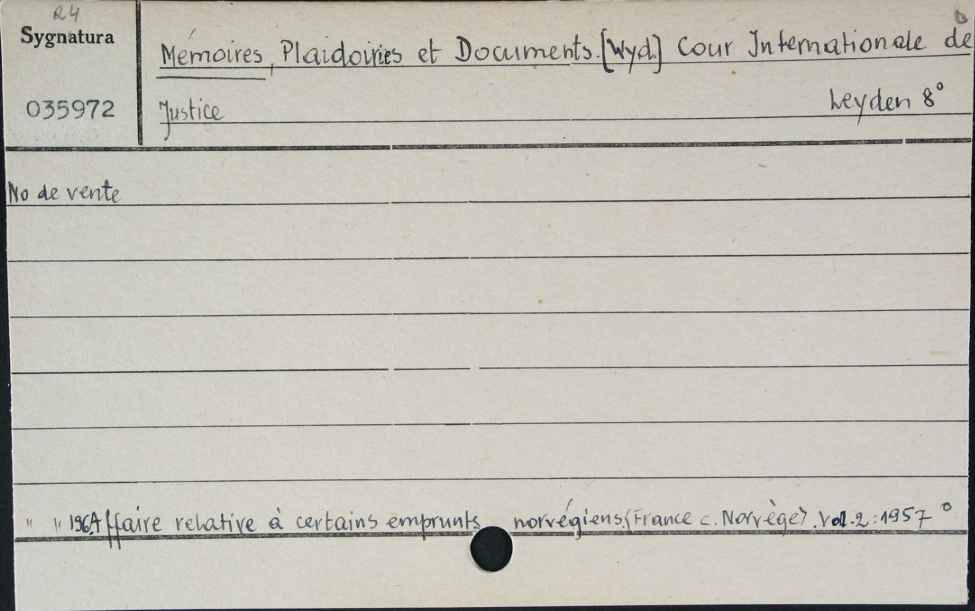 R4
Sygnatura
Mémoires, Plaidoiries et Documents. [Wyd.] Cour Internationale de
035972
Justice
Leyden 8°
No de vente
" " 196. Affaire relative à certains emprunts norvégiens (France c. Norvège). Vol. 2 : 1957 °